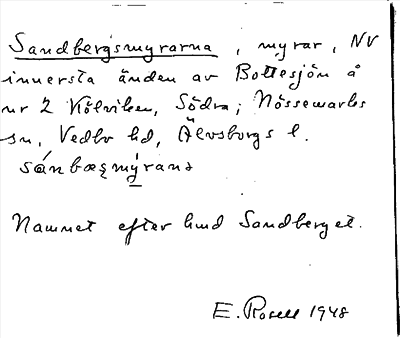 Sandbergsmyrarna, myrar, NV
innersta änden av Bottesjön å
nr 2 Kölviken, Södra; Nössemarks
sn, Vedbo hd, Älvsborgs l.
sánbæʂmýrana
Namnet efter hmd Sandberget.
E. Rosell 1948